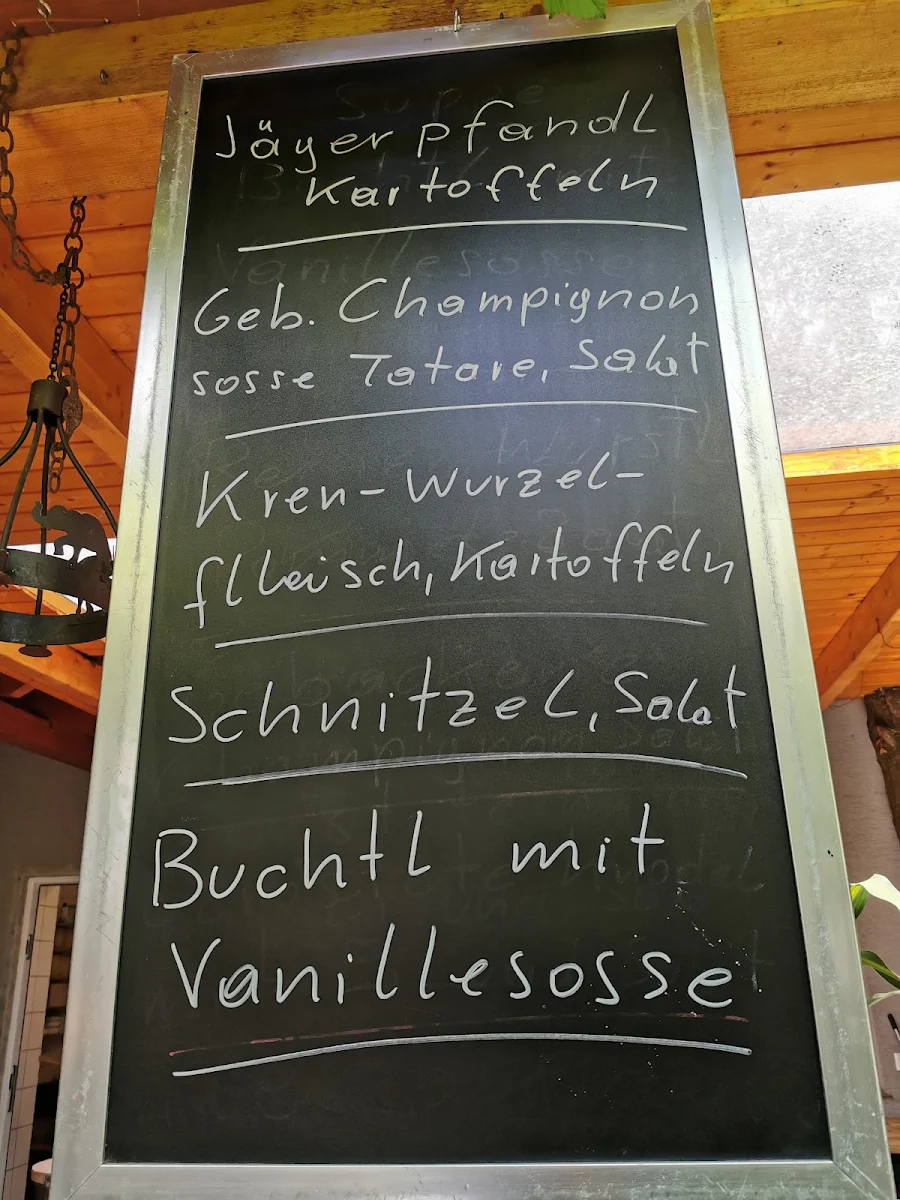 Jägerpfandl
Kartoffeln
Geb. Champignon
sosse Tatare, Salat
Kren-Wurzel-
flleisch, Kartoffeln
Schnitzel, Salat
Buchtl mit
Vanillesosse